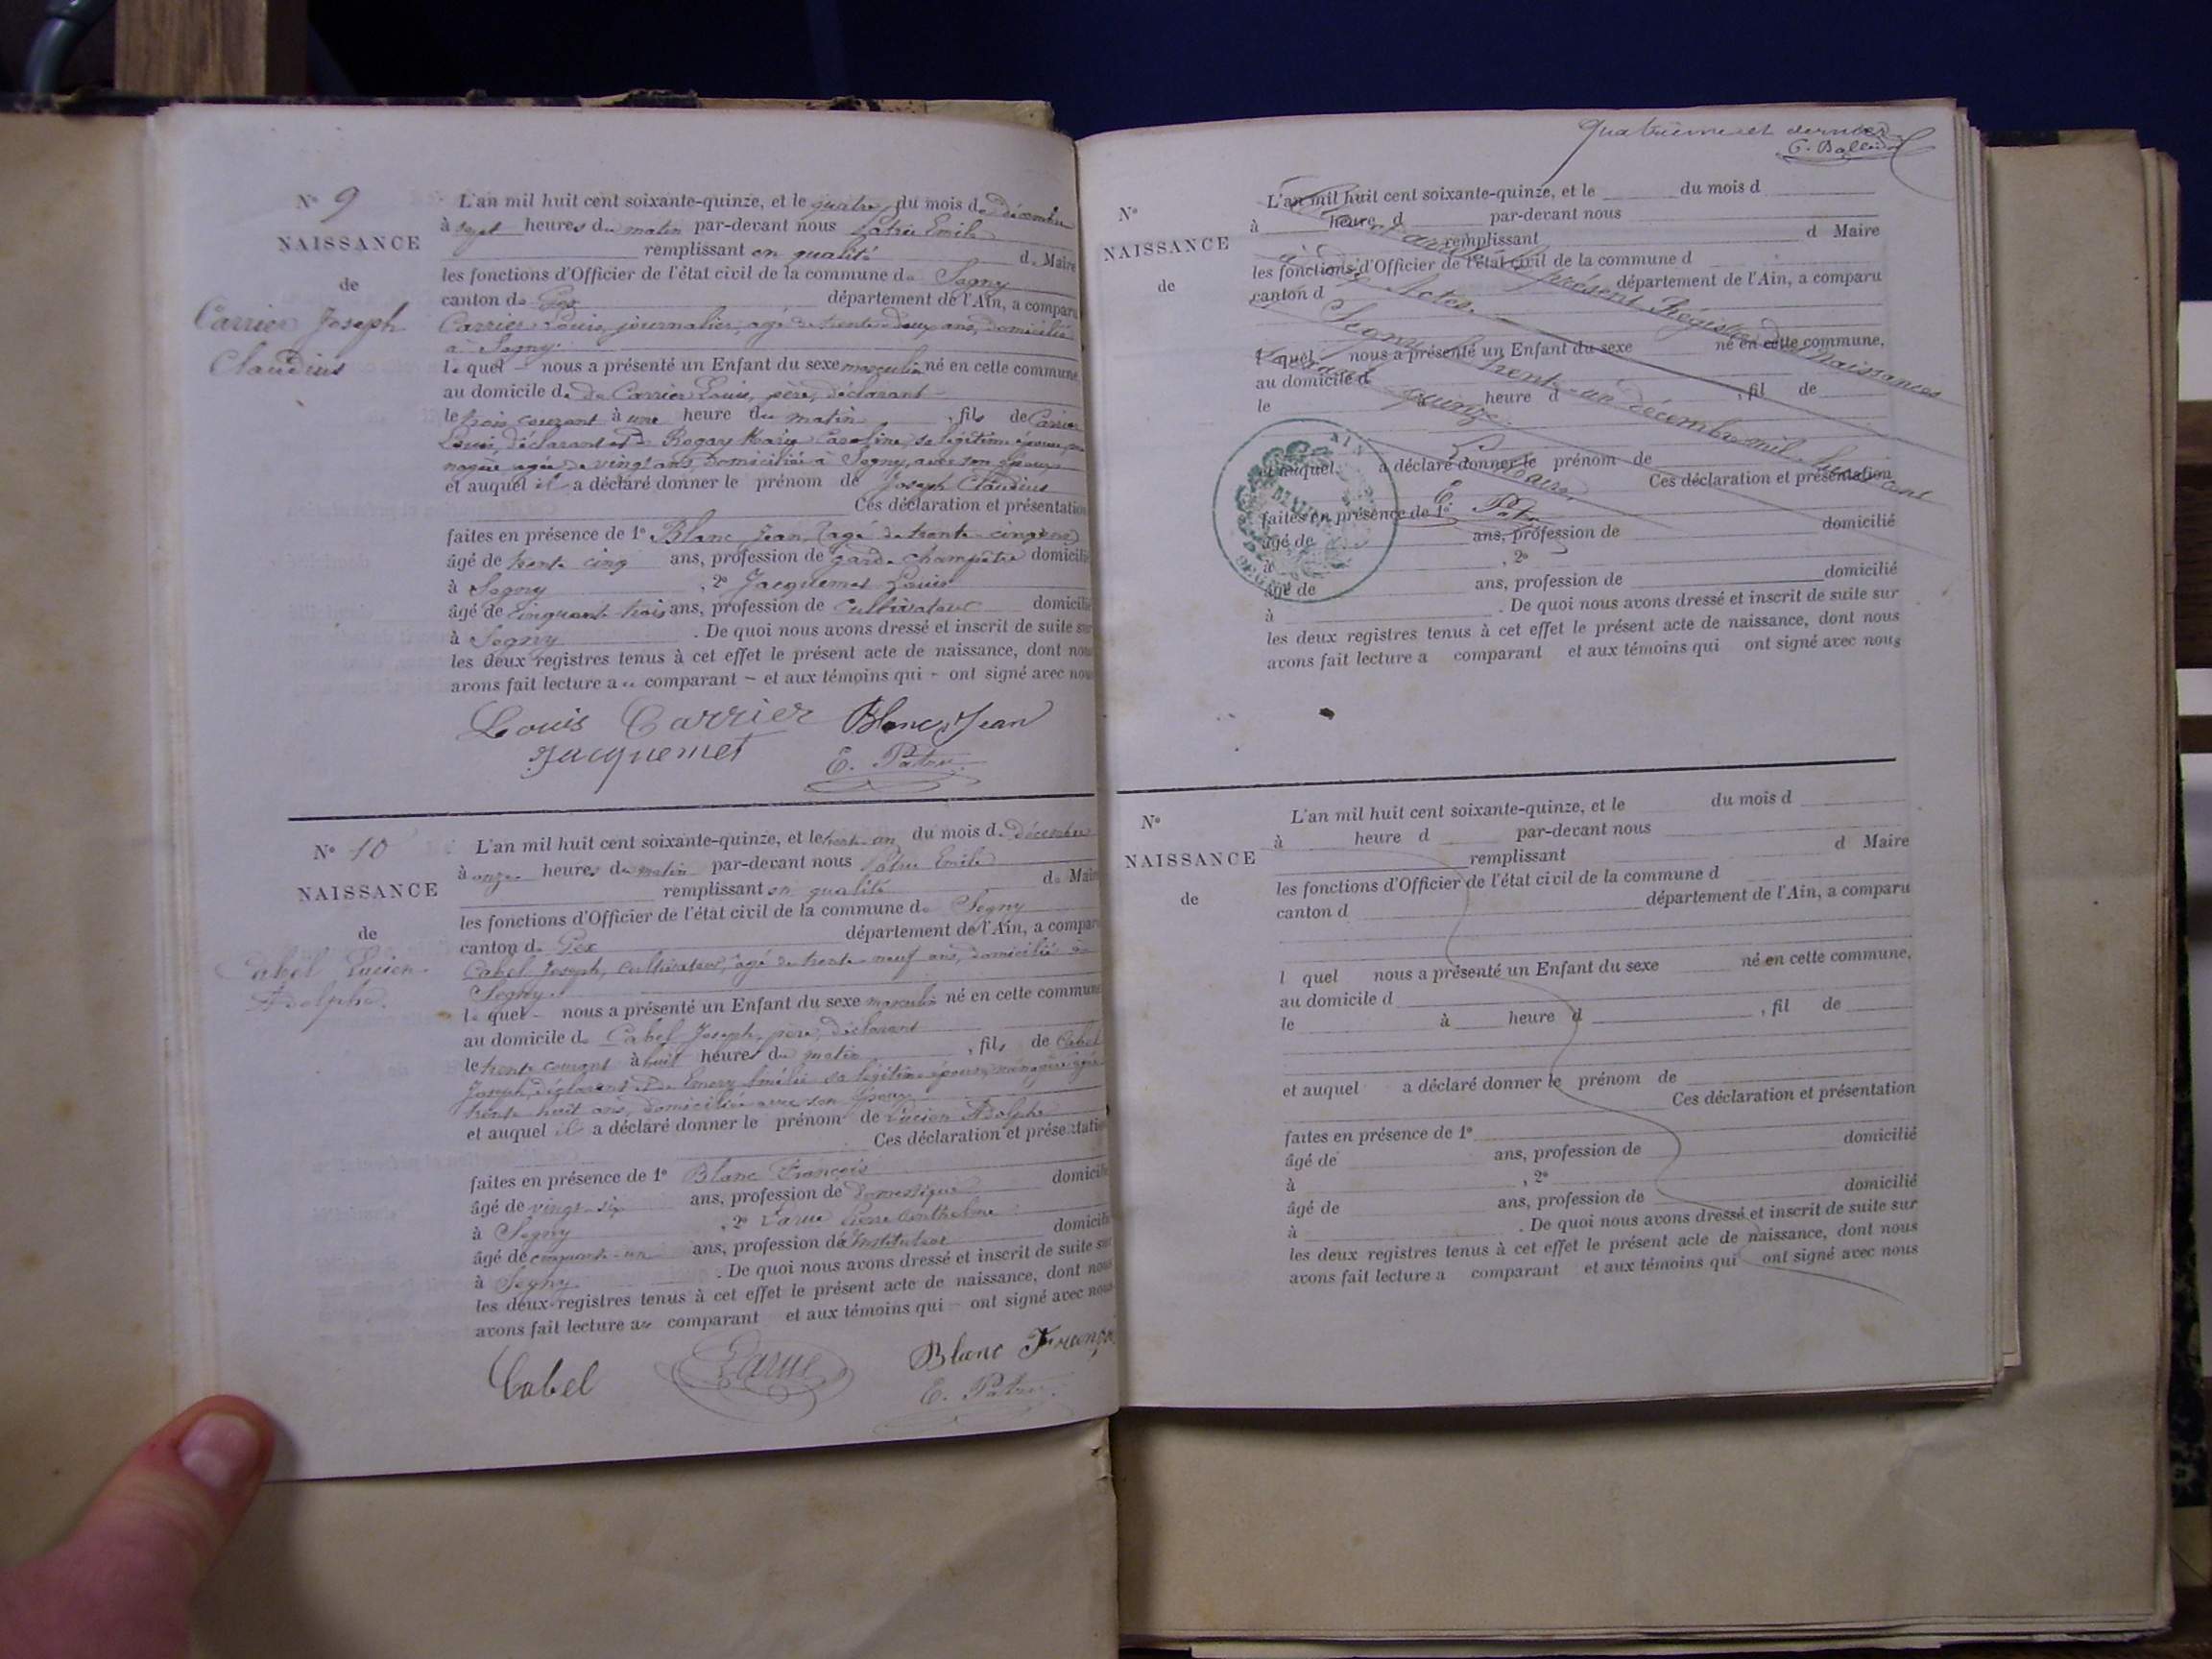 N° 9
NAISSANCE
de
Carrier Joseph
Claudius
L'an mil huit cent soixante-quinze, et le quatre du mois de décembre
à sept heures du matin par-devant nous Patru Emile
remplissant en qualité de Maire
les fonctions d'Officier de l'état civil de la commune de Segny
canton de Gex département de l'Ain, a comparu
Carrier Louis, journalier, agé de trente deux ans, domicilié
à Segny.
le quel nous a présenté un Enfant du sexe masculin né en cette commune,
au domicile de de Carrier Louis, père, déclarant
le trois courant à une heure du matin, fils de Carrier
Louis, déclarant et de Rogay Marie Caroline, sa légitime épouse,
agée de vingt ans, domiciliée à Segny, avec son époux
et auquel il a déclaré donner le prénom de Joseph Claudius
Ces déclaration et présentation
faites en présence de 1° Blanc Jean (agé de trente-cinq ans)
âgé de trente cinq ans, profession de garde champêtre domicilié
à Segny, 2° Jacquemet Louis
âgé de cinquante trois ans, profession de cultivateur domicilié
à Segny. De quoi nous avons dressé et inscrit de suite sur
les deux registres tenus à cet effet le présent acte de naissance, dont nous
avons fait lecture au comparant – et aux témoins qui – ont signé avec nous
Louis Carrier Blanc Jean
Jacquemet E. Patru
N° 10
NAISSANCE
de
Cabel Lucien
Adolphe
L'an mil huit cent soixante-quinze, et le trente-un du mois de décembre
à onze heures du matin par-devant nous Patru Emile
remplissant en qualité de Maire
les fonctions d'Officier de l'état civil de la commune de Segny
canton de Gex département de l'Ain, a comparu
Cabel Joseph, cultivateur, agé de trente neuf ans, domicilié à
Segny.
le quel – nous a présenté un Enfant du sexe masculin né en cette commune
au domicile de Cabel Joseph, père, déclarant
le trente courant à huit heures du matin, fils de Cabel
Joseph, déclarant et de Emery Amélie sa légitime épouse, ménagère agée
trente huit ans, domiciliée avec son époux
et auquel il a déclaré donner le prénom de Lucien Adolphe
Ces déclaration et présentation
faites en présence de 1° Blanc François
âgé de vingt-six ans, profession de domestique domicilié
à Segny, 2° Larue Pierre Anthelme
âgé de cinquante-un ans, profession de Instituteur domicilié
à Segny. De quoi nous avons dressé et inscrit de suite sur
les deux registres tenus à cet effet le présent acte de naissance, dont nous
avons fait lecture au comparant et aux témoins qui – ont signé avec nous
Cabel Larue Blanc François
E. Patru
Quatrième et dernier
N°
NAISSANCE
de
L'an mil huit cent soixante-quinze, et le du mois d
à heure d par-devant nous
remplissant d Maire
les fonctions d'Officier de l'état civil de la commune d
canton d département de l'Ain, a comparu
l quel nous a présenté un Enfant du sexe né en cette commune,
au domicile d
le heure d, fil de
et auquel a déclaré donner le prénom de
Ces déclaration et présentation
faites en présence de 1°
âgé de ans, profession de domicilié
à, 2°
âgé de ans, profession de domicilié
à. De quoi nous avons dressé et inscrit de suite sur
les deux registres tenus à cet effet le présent acte de naissance, dont nous
avons fait lecture a comparant et aux témoins qui ont signé avec nous
arrêté présent Régistre des Naissances
à dix Actes.
Segny le trente-un décembre mil huit cent
soixante quinze.
Le Maire,
E. Patru
AIN
MAIRIE
SEGNY
N°
NAISSANCE
de
L'an mil huit cent soixante-quinze, et le du mois d
à heure d par-devant nous
remplissant d Maire
les fonctions d'Officier de l'état civil de la commune d
canton d département de l'Ain, a comparu
l quel nous a présenté un Enfant du sexe né en cette commune,
au domicile d
le à heure d, fil de
et auquel a déclaré donner le prénom de
Ces déclaration et présentation
faites en présence de 1°
âgé de ans, profession de domicilié
à, 2°
âgé de ans, profession de domicilié
à. De quoi nous avons dressé et inscrit de suite sur
les deux registres tenus à cet effet le présent acte de naissance, dont nous
avons fait lecture a comparant et aux témoins qui ont signé avec nous